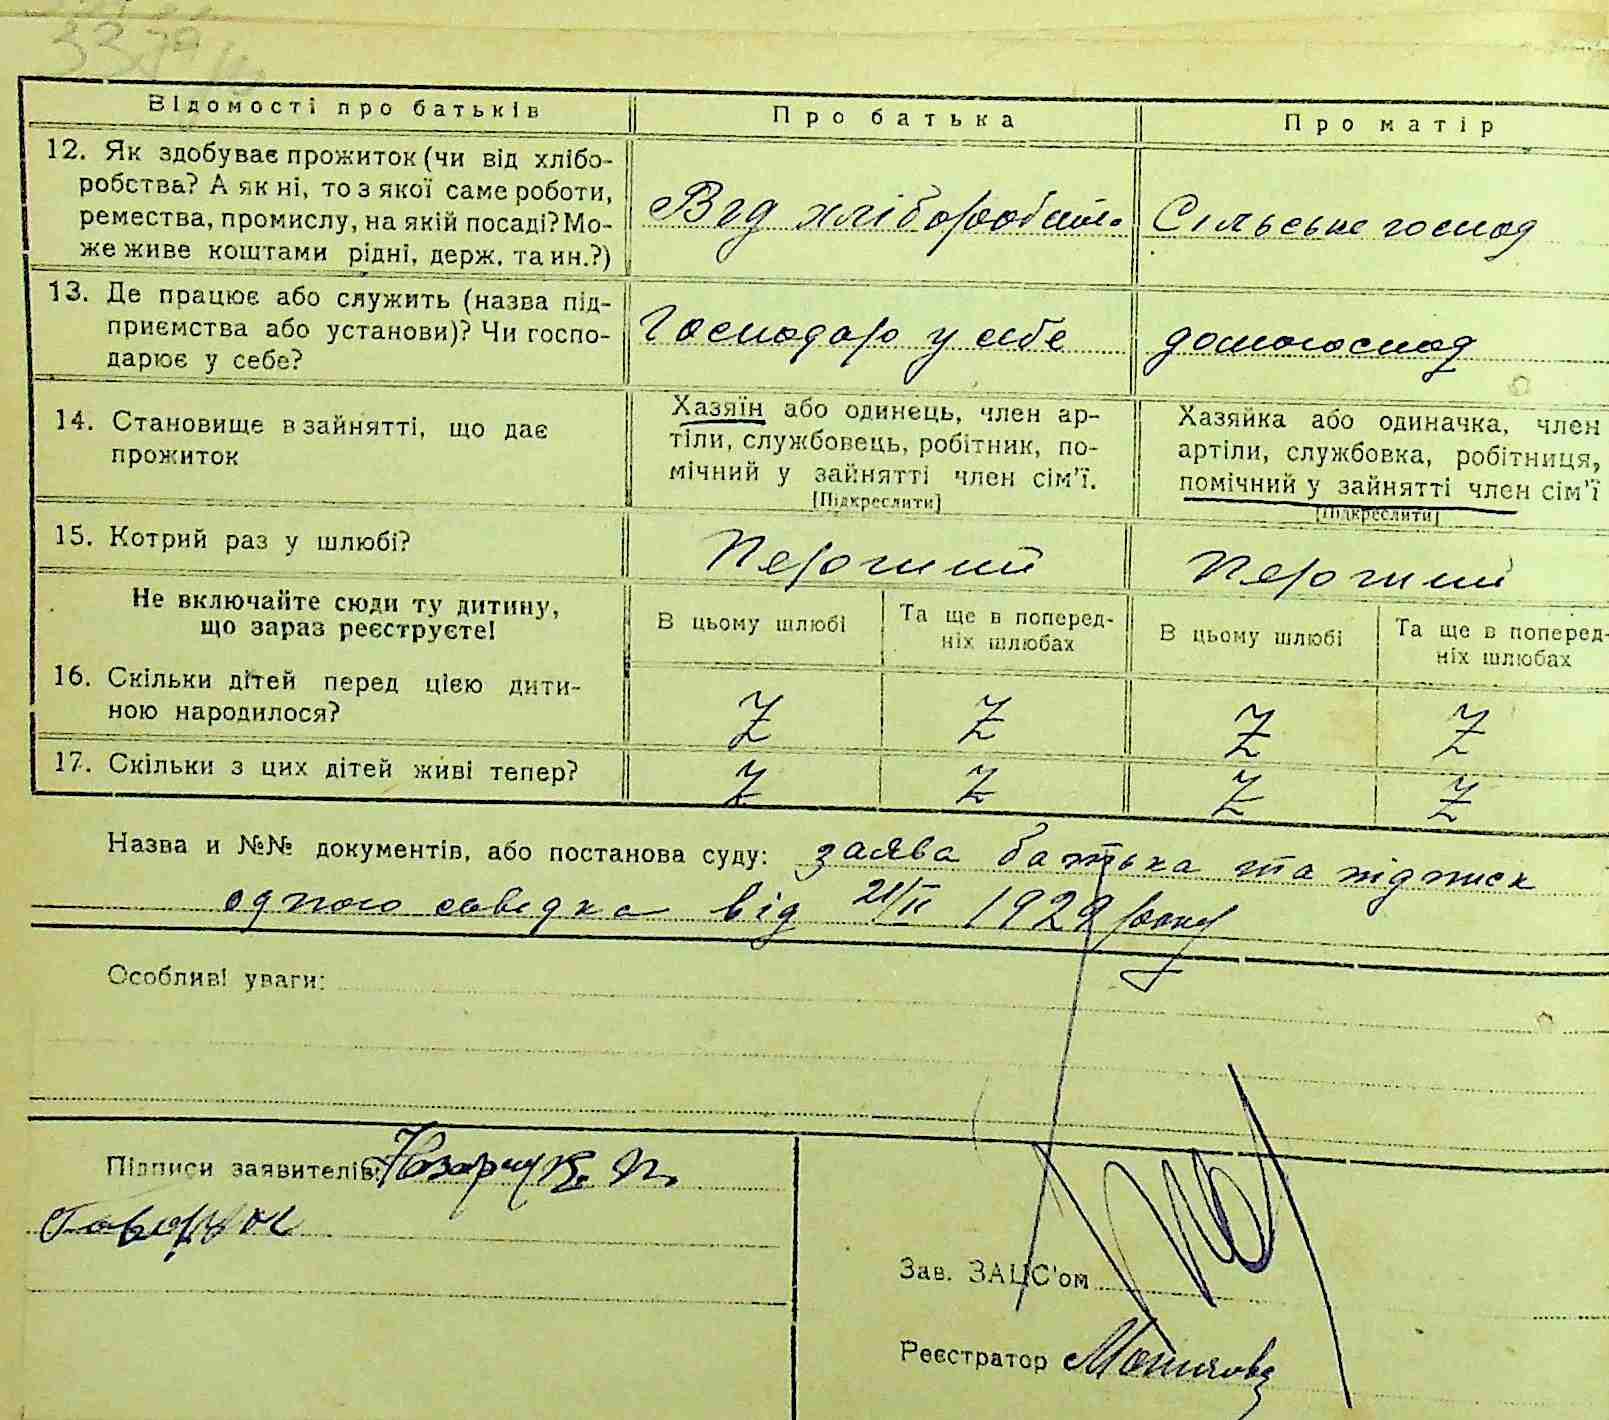 Відомості про батьків Про батька Про матір
12. Як здобуває прожиток (чи від хлібо-
робства? А як ні, то з якої саме роботи,
ремества, промислу, на якій посаді? Мо-
же живе коштами рідні, держ. та ин.?)
Від хлібороб Сільське господ
13. Де працює або служить (назва під-
приємства або установи)? Чи госпо-
дарює у себе?
Господарю у себе домогоспод
14. Становище в зайнятті, що дає
прожиток
Хазяїн або одинець, член ар-
тіли, службовець, робітник, по-
мічний у зайнятті член сім'ї.
[Підкреслити]
Хазяйка або одиначка, член
артіли, службовка, робітниця,
помічний у зайнятті член сім'ї
[Підкреслити]
15. Котрий раз у шлюбі?
Перший Перший
Не включайте сюди ту дитину,
що зараз реєструєте!
В цьому шлюбі
Та ще в поперед-
ніх шлюбах
В цьому шлюбі
Та ще в поперед-
ніх шлюбах
16. Скільки дітей перед цією дити-
ною народилося?
Z Z Z Z
17. Скільки з цих дітей живі тепер?
Z Z Z Z
Назва и №№ документів, або постанова суду: заява батька та підписк
одного свідка від 21/II 1929 року
Особливі уваги:
Підписи заявителів: Назарчук П.
Зав. ЗАЦС'ом
Реєстратор